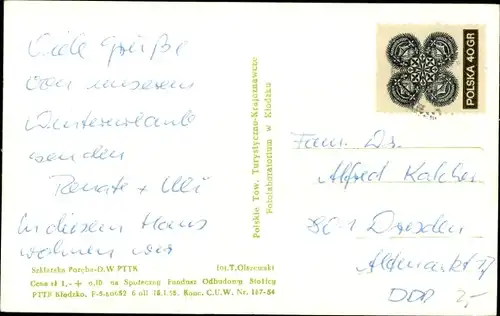 Viele Grüße
von unserem
Winterurlaub
senden
Renate + Uli
In diesem Haus
wohnen wir
Szklarska Poręba-D.W PTTK fot.T.Olszewski
Cena zł 1,-+ 0.10 na Społeczny Fundusz Odbudowy Stolicy
PTTK Kłodzko. Konc. C.U.W. Nr. 167-54
Polskie Tow. Turystyczno-Krajoznawcze
Fotolaboratorium w Kłodzku
POLSKA 40 GR
Fam. Dr.
Alfred Kalcher
801 Dresden
Altmarkt
DDR